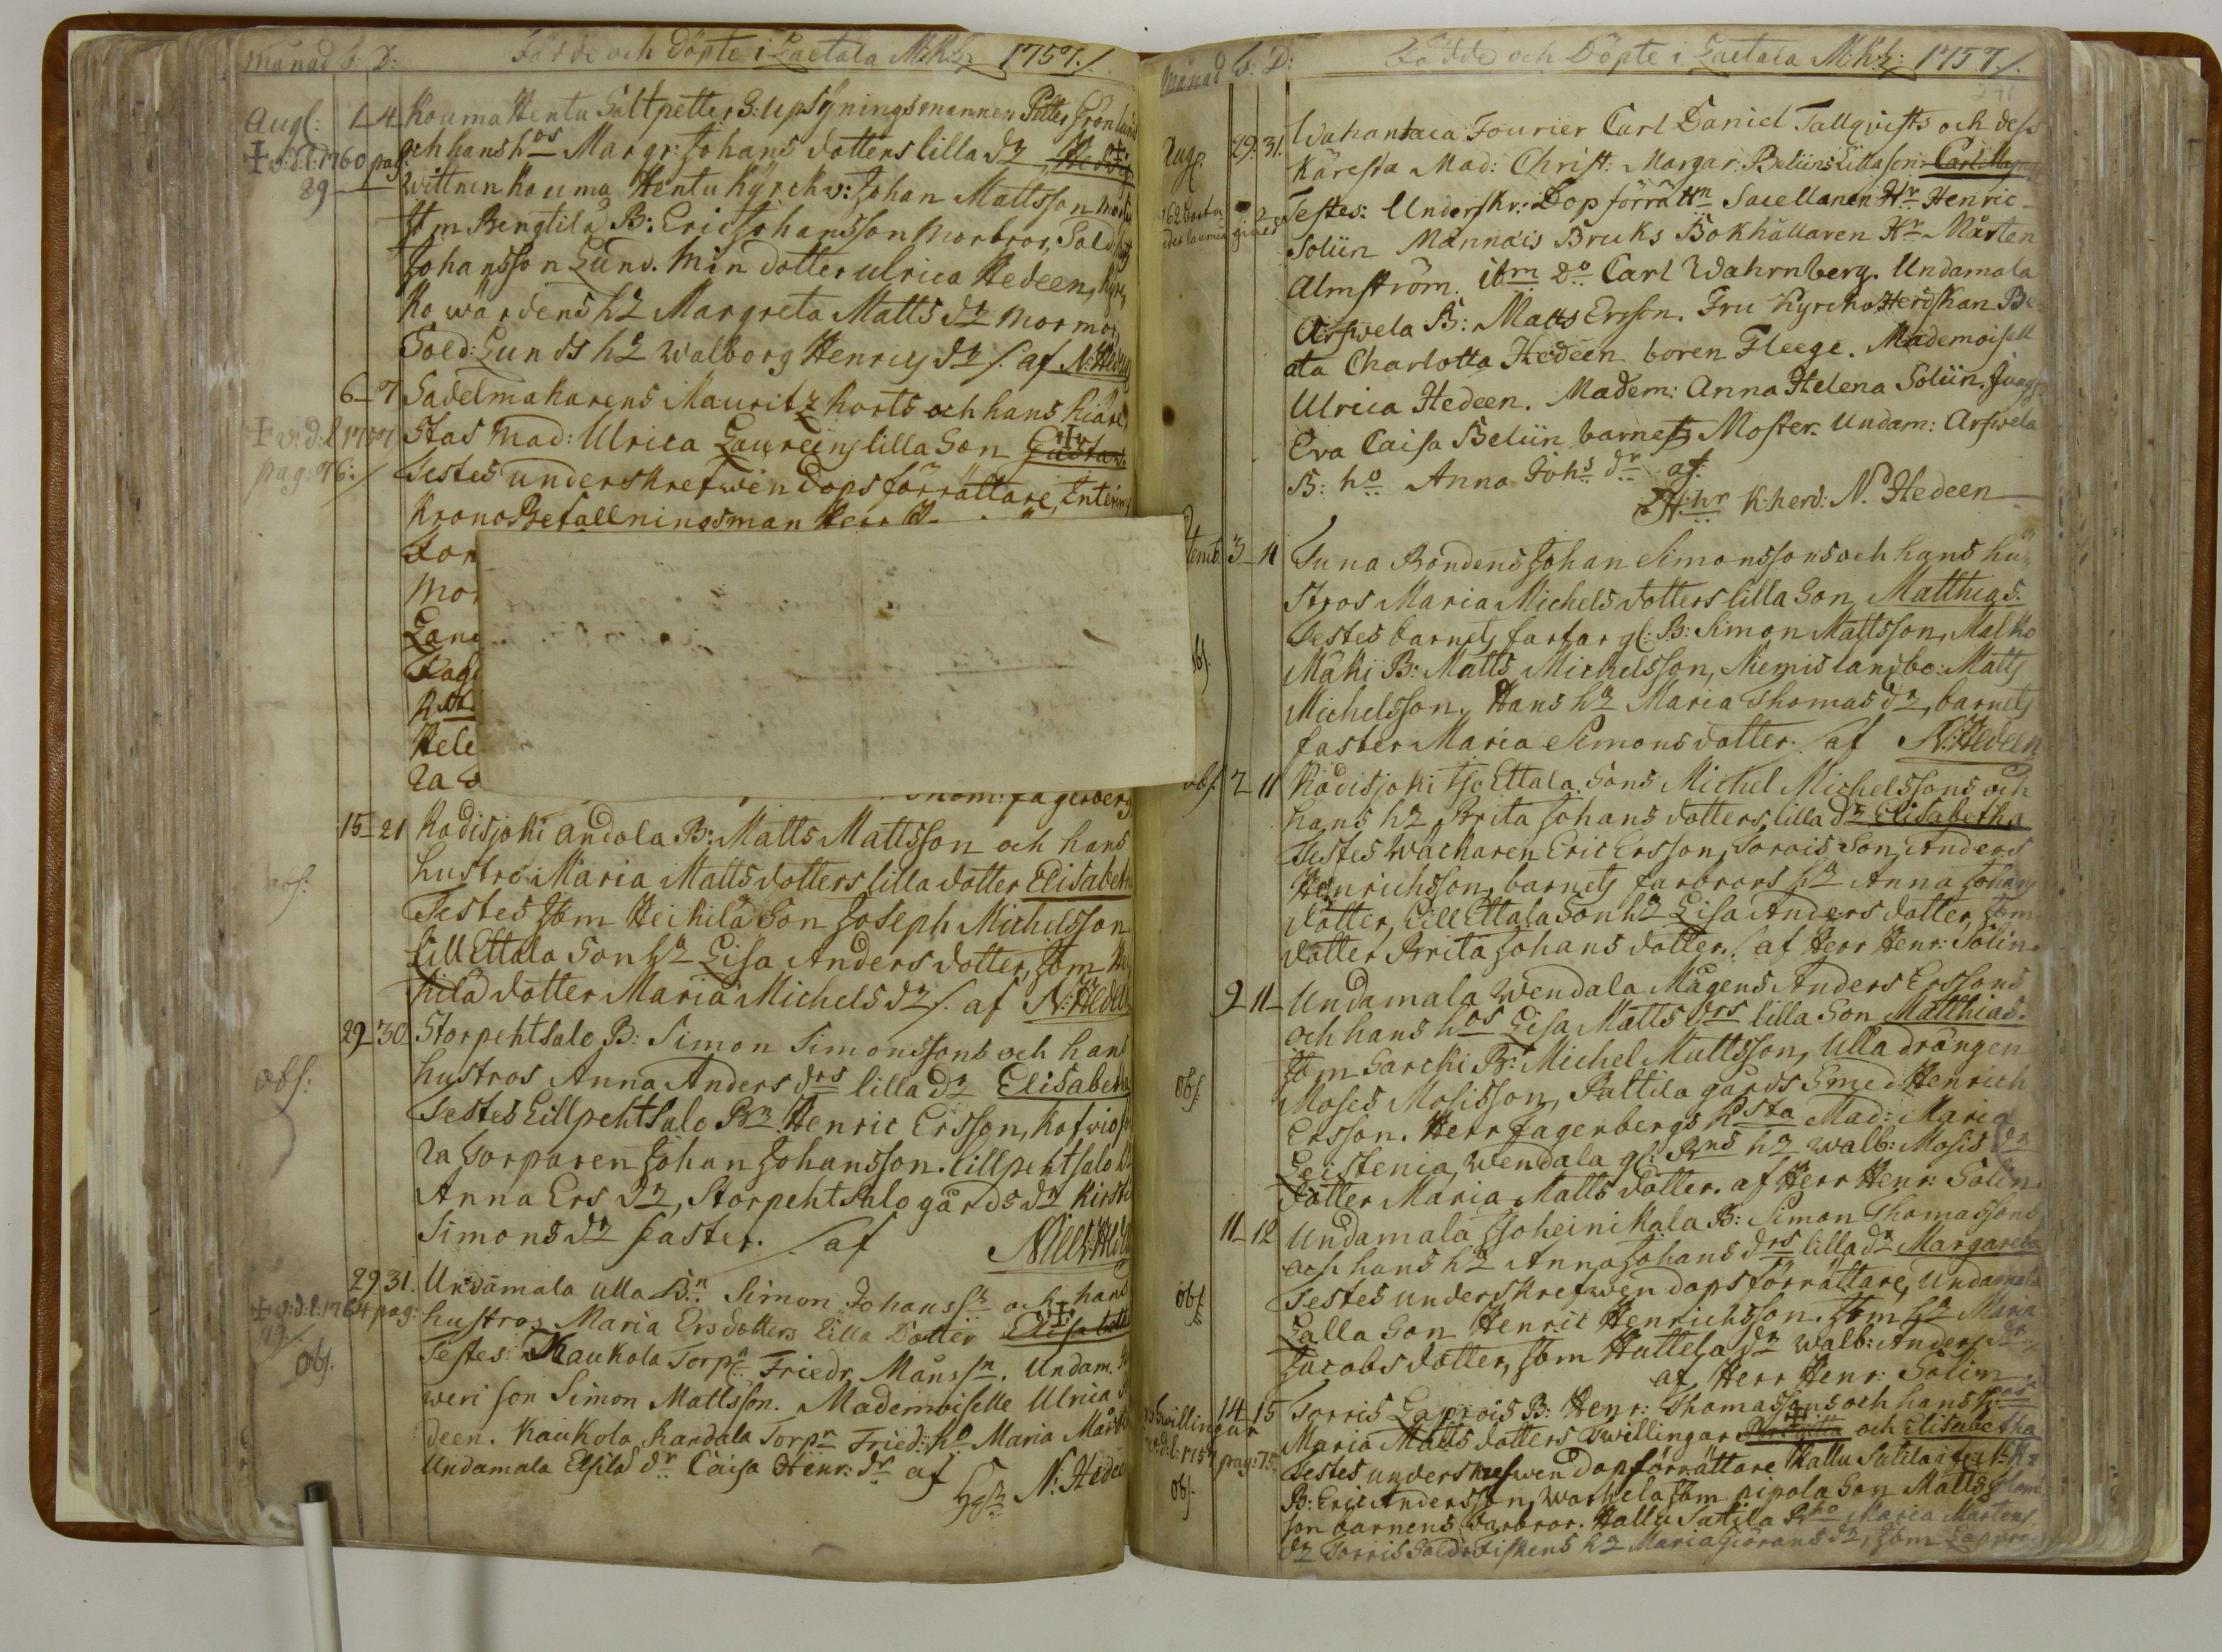 Månad b: D: Födde och Döpte i Laetala M:K:r 1757./.
Aug: 1 4 Kouma Hentu Saltpetter S: upsÿningsmannen Petter Grönlunds
✝ v: d: l: 1760 pag: och hans h:os Margr: Johans dotters lilla dr Hedvig
29 Wittnen Kouma Hentu Kÿrckv: Johan Mattsson morfar
Jbm Bengtilä B: Eric Johansson morbror, Sold:
Johansson Lund. Min dotter Ulrica Hedeen, Kÿrc
ko wärdens hr Margreta Matts dr mormor,
Sold: Lunds hr Walborg Henrics dr /. af N: Hedeen
6 7 Sadelmakarens Mauritz Korts och hans Kiäre
✝ v: d: l 1757 stas Mad: Ulrica Laureins lilla Son Gustav.
pag: 76: / Testes underskrefwen dops förrättare, Interims
Krono Befallningsman Herr
For
Mor
Land
Fag
Hele
ra
Thom: Fagerberg
15 21 Kodisjoki andola B: Matts Mattsson och hans
obs: hustro Maria Matts dotters lilla dotter Elisabeth
Testes Jbm Heickilä Son Joseph Michelsson
Lill Ettala Son hr Lisa Anders dotter, Jbm Hei
kilä dotter Maria Michels dr /. af N: Hedeen
29 30 Storpehtsalo B: Simon Simonssons och hans
obs: hustros Anna Anders drs lilla dr Elisabetha
Testes Lillpehtsalo Br Henric Ersson, Kofvios
ra Torparen Johan Johansson. Lillpehtsalo hr
Anna Ers dr, Storpehtsalo gårds dr Kirstin
Simons dr faster. /. af Nils: Hedeen
29 31. Undamala ulla B:n Simon Johanss:n och hans
✝ v: d: l: 1764 pag: hustros Maria Ersdotters lilla Dotter Elisabeth
119 Testes: Kaukola Torp:n Friedr. Månss:n. Undam.
obs. weri son Simon Mattsson. Mademoiselle Ulrica He
deen. Kaukola Kandala Torp:r Fried: h:o Maria Mårt
Undamala Elsilä d:r Caisa Henr: d:r af N: Hedeen
Månad b: D: Födde och Döpte i Laetala M:K:r: 1757./.
Aug: 29. 31. Wahantaca Fourier Carl Daniel Tallqvists och dess
Käresta Mad: Christ: Margar: Beliins Lilla son: Carl Magn
Testes: Underskr: Dop förrätt:n Sacellanen H:r Henric
Soliin Männäis Bruks Bokhållaren H:r Mårten
Almström. ib:m D:o Carl Wahrnberg. Undamala
Arfwela B: Matts Ersson. Fru KyrckoHerdskan Be
ata Charlotta Hedeen boren Fleege. Mademoisell
Ulrica Hedeen. Madem: Anna Helena Soliin. Jungf
Eva Caisa Beliin barnets Moster. Undam: Arfwela
B: h:o Anna Joh:s d:r af:
K:herd: N: Hedeen
temb. 3 4 Suna Bondens Johan Simonssons och hans hu,
stros Maria Michels dotters lilla Son Matthias.
obs. Testes barnets farfar gl: B: Simon Mattsson, Malko
Mäki B: Matts Michelsson, Niemis landbo: Matts
Michelsson, Hans hr Maria Thomas dr, barnets
faster Maria Simons dotter. /. af N: Hedeen
obs. 7 11 Kådisjoki Iso Ettala Sons Michel Michelssons och
hans hr Brita Johans dotters lilla dr Elisabetha
Testes Wäckaren Eric Ersson, Sorois Son Anders
Henrichsson, barnets farbrors hr Anna Johans
dotter, Lill Ettala Son hr Lisa Anders dotter, Jbm
dotter Brita Johans dotter. /. af Herr Henr: Solin.
9 11 Undamala Wendala Mågens Anders Erssons
och hans h:os Lisa Matts drs lilla Son Matthias.
obs: Jbm Sarcki B: Michel Mattsson, Ulla drängen
Moses Mosisson, Paltila gårds Smed: Henrich
Ersson. Herr Fagerbergs K:sta Mad: Maria
Leistenia, Wendala gl: B:ns hr Walb: Mosis dr
dotter Maria Matts dotter. af Herr Henr: Solin.
11 12 Undamala Isoheinikala B: Simon Thomassons
och hans hr Anna Johans drs lilla dr Margareta
obs Testes underskrefwen dopsförrättare, Undamala
Lalla Son Henric Henrichsson. Jbm hr Maria
Jacobs dotter, Jbm Huttela dr Walb: Anders dr.
af Herr Henr: Solin.
Twillingar 14 15 Torris Laprois B: Henr: Thomassons och hans h:os
v: d: l: 1757 pag: 75. Maria Matts dotters twillingar Birgitta och Elisabetha
obs. Testes underskrefwen dopförrättare Kallu Sutila
B: Eric Andersson, Warhela Jbm pipola Son Matts Thom:
son barnens farbror. Kallu Sutila B:ho Maria Martens
dr Torris Sold: Fiskens hr Maria Giörans dr, Jbm Lapprois